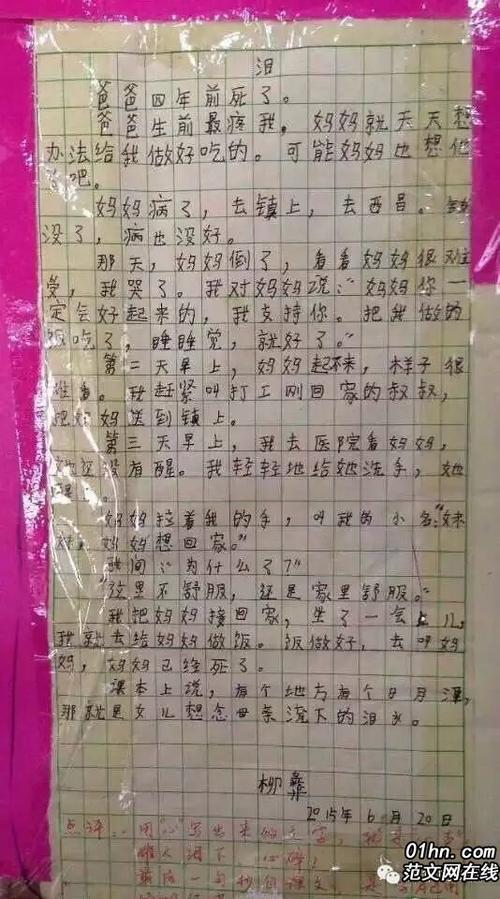 泪
爸爸四年前死了。
爸爸生前最疼我，妈妈就天天想
办法给我做好吃的。可能妈妈也想他
吧。
妈妈病了，去镇上，去西昌。钱
没了，病也没好。
那天，妈妈倒了，看看妈妈很难
受，我哭了。我对妈妈说：“妈妈你一
定会好起来的，我支持你。把我做的
饭吃了，睡睡觉，就好了。”
第二天早上，妈妈起不来，样子很
难看。我赶紧叫打工刚回家的叔叔，
把妈妈送到镇上。
第三天早上，我去医院看妈妈，
她还没有醒。我轻轻地给她洗手，她
醒了。
妈妈拉着我的手，叫我的小名：“妹
妹，妈妈想回家。”
我问：“为什么了？”
“这里不舒服，还是家里舒服。”
我把妈妈接回家，坐了一会儿，
我就去给妈妈做饭。饭做好，去叫妈
妈，妈妈已经死了。
课本上说，有个地方有个日月潭，
那就是女儿想念母亲流下的泪水。
柳彝
2015年6月20日
点评：用“心”写出来的文字，
催人泪下，心碎，
最后一句
01hn.com
范文网在线